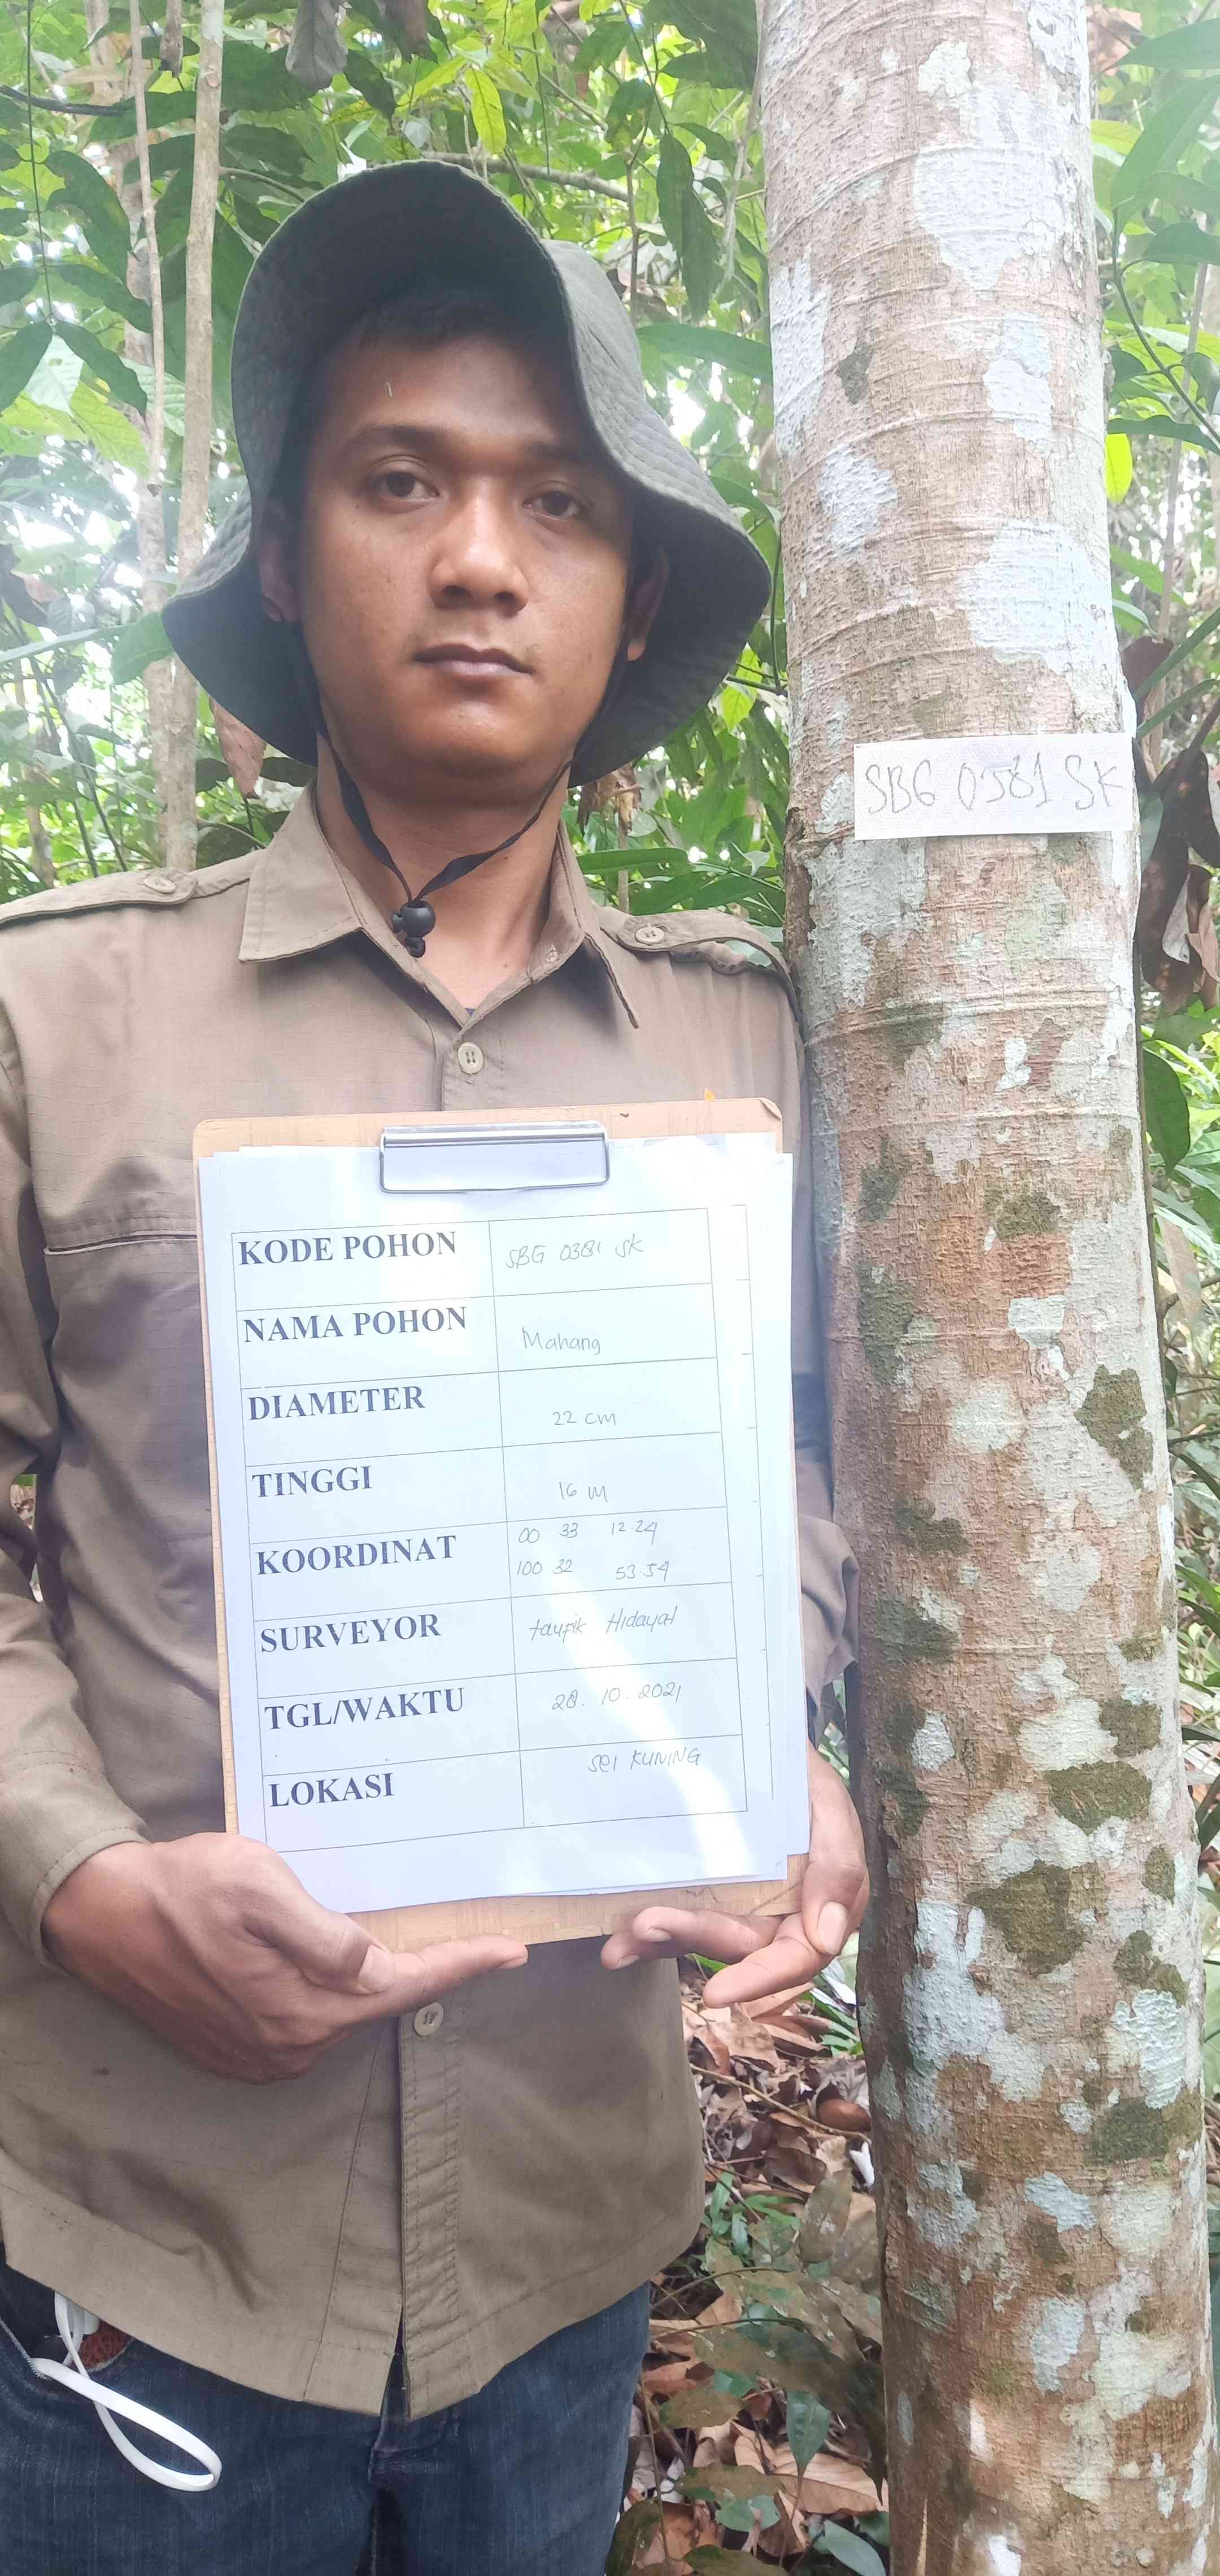 SBG 0381 SK
KODE POHON SBG 0381 SK
NAMA POHON Mahang
DIAMETER 22 cm
TINGGI 16 m
KOORDINAT 00 33 12.24
100 32 53.54
SURVEYOR taufik Hidayat
TGL/WAKTU 28.10.2021
LOKASI SEI KUNING